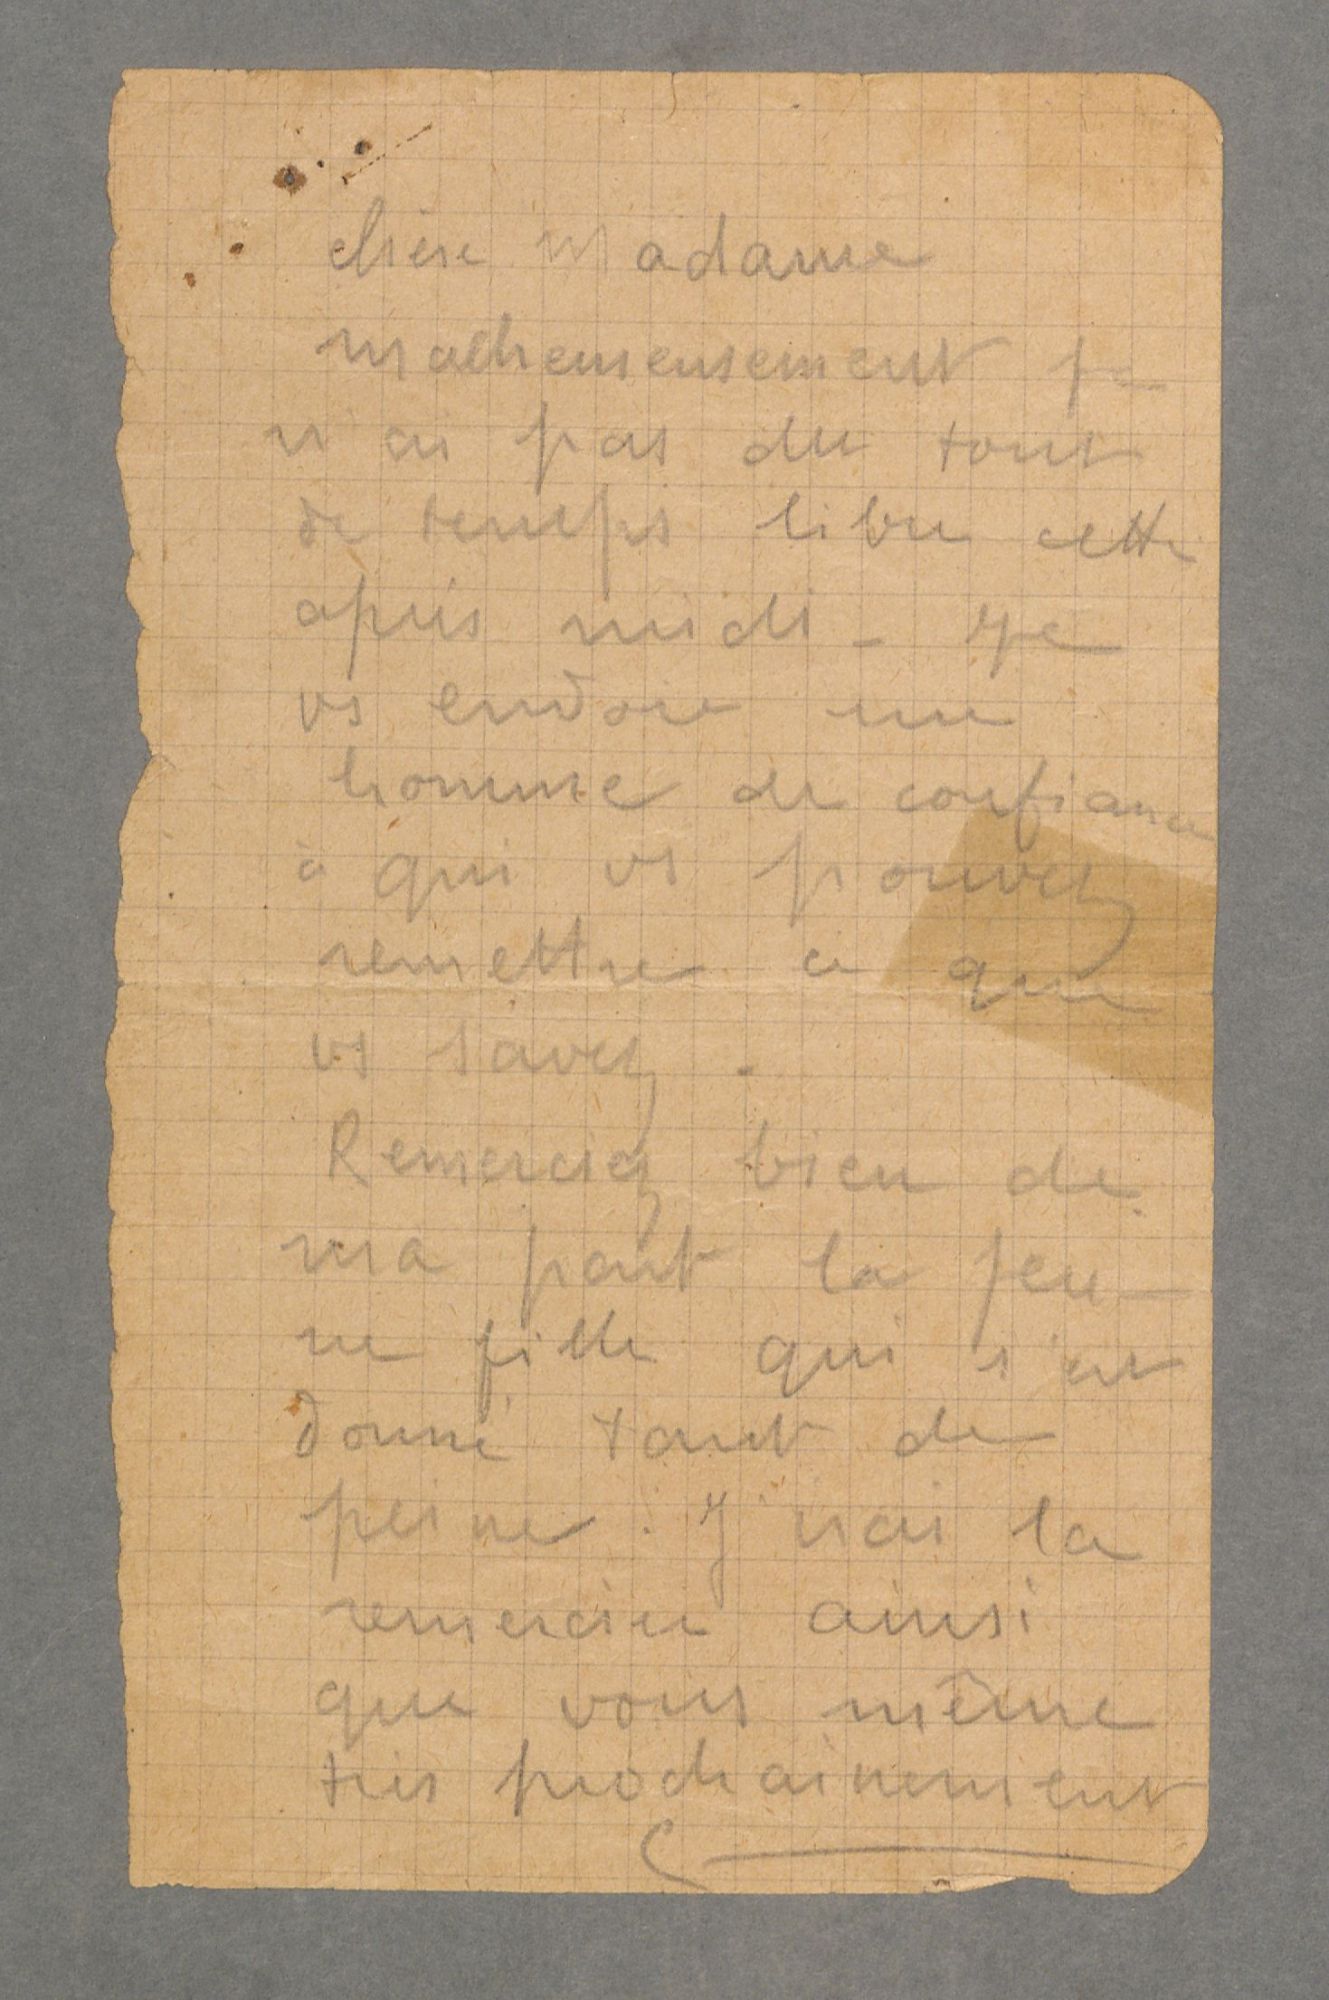 chère Madame
malheureusement je
n'ai pas du tout
de temps libre cette
après midi - Je
vs envoie un
homme de confiance
à qui vs pouvez
remettre ce que
vs savez.
Remerciez bien de
ma part la jeu-
ne fille qui s'est
donné tant de
peine. J'irai la
remercier ainsi
que vous même
très prochainement
C